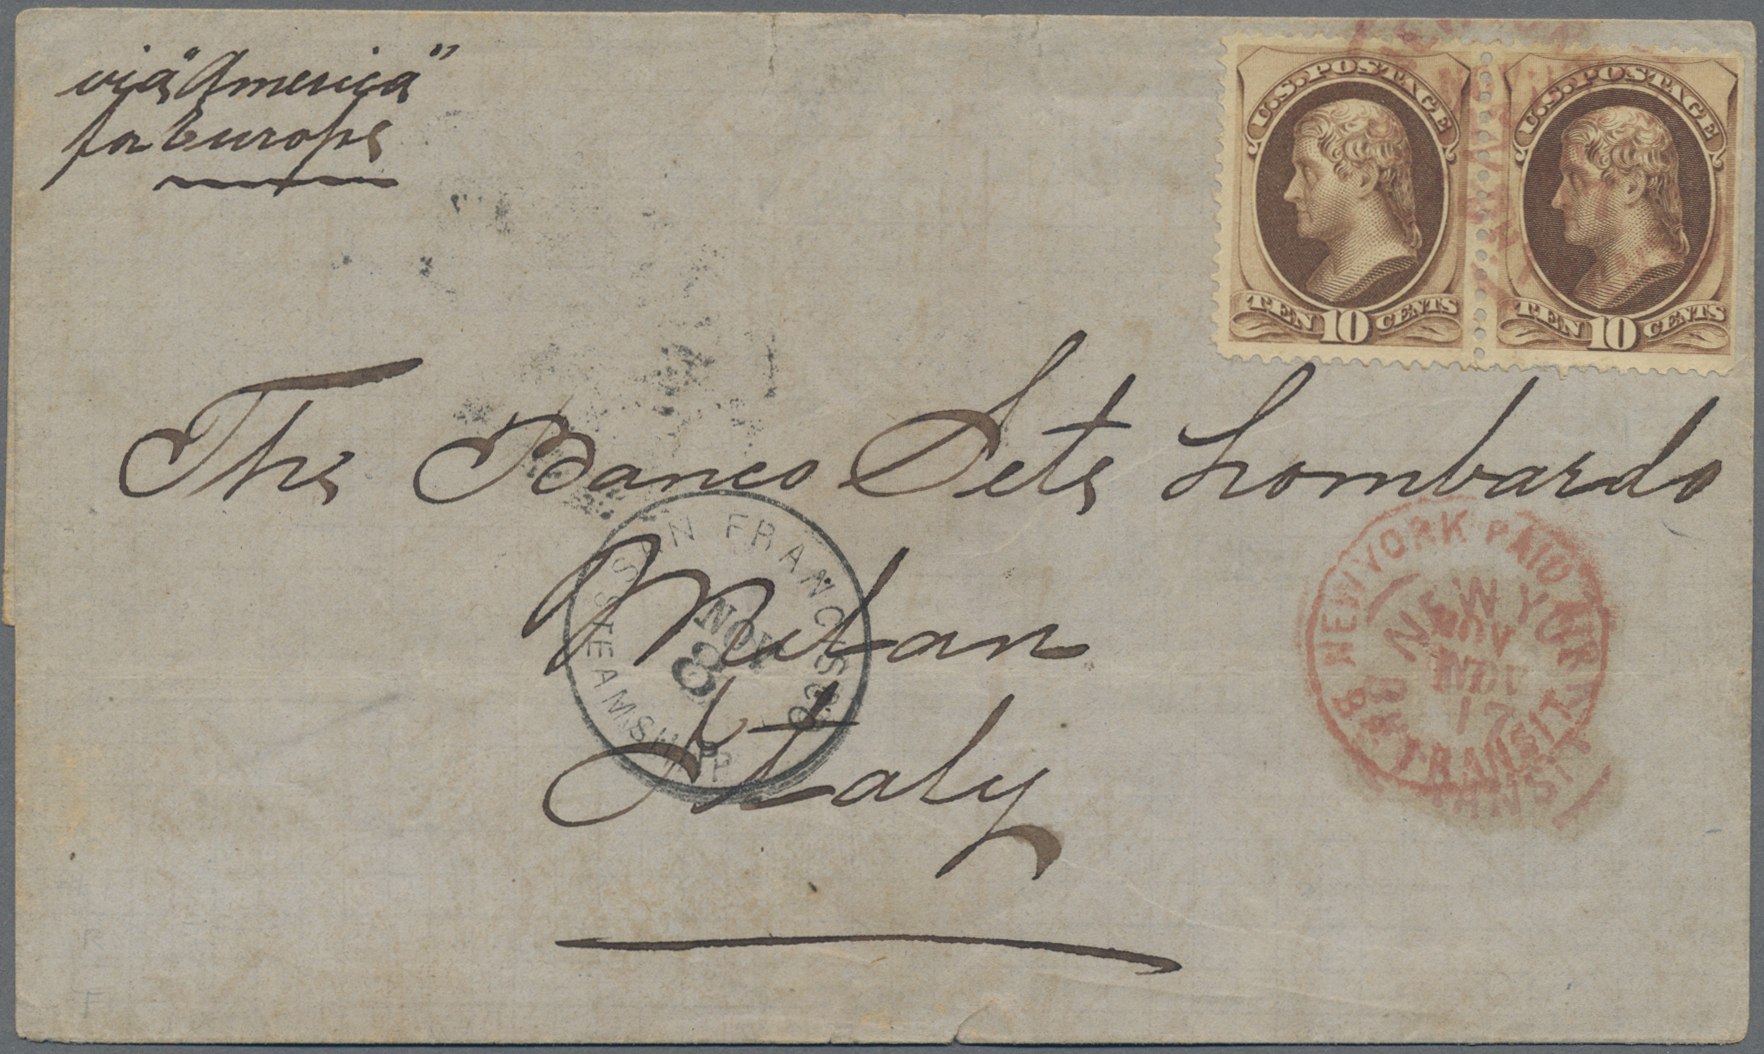 via "America"
for Europe
U.S. POSTAGE
TEN 10 CENTS
U.S. POSTAGE
TEN 10 CENTS
The Banco Sete Lombardo
Milan
Italy
SAN FRANCISCO
NOV
8
STEAMSHIP
NEW YORK PAID ALL
BR. TRANSIT
NEW YORK
NOV
NOV
17
TRANSIT